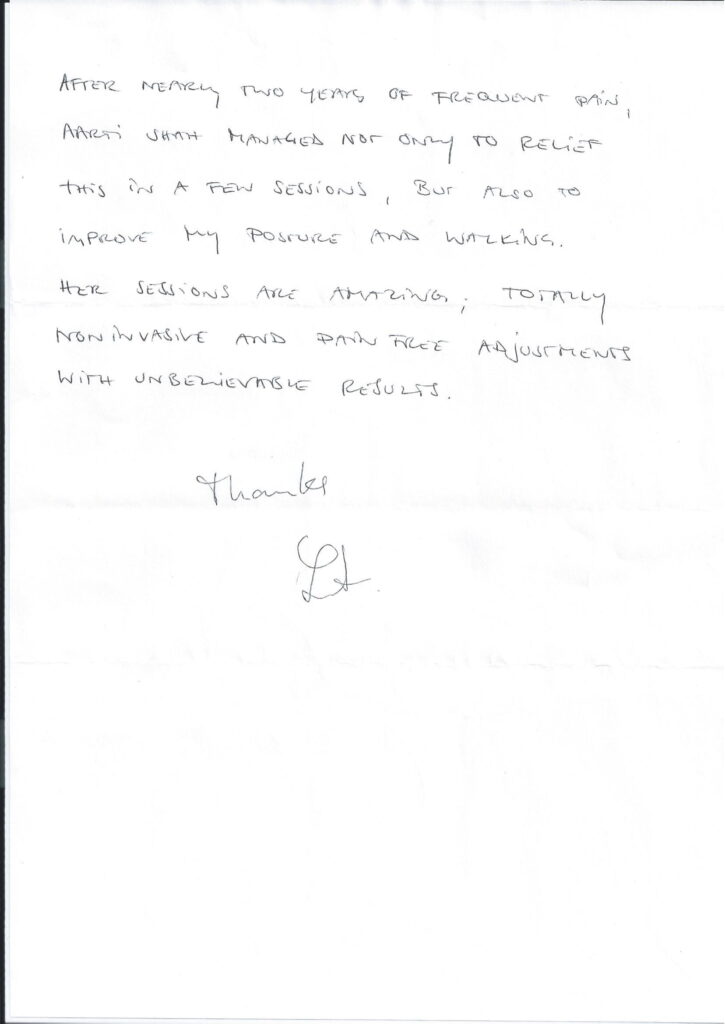 AFTER NEARLY TWO YEARS OF FREQUENT PAIN,
AARTI SHAH MANAGED NOT ONLY TO RELIEF
THIS IN A FEW SESSIONS, BUT ALSO TO
IMPROVE MY POSTURE AND WALKING.
HER SESSIONS ARE AMAZING; TOTALLY
NONINVASIVE AND PAIN FREE ADJUSTMENTS
WITH UNBELIEVABLE RESULTS.
Thanks